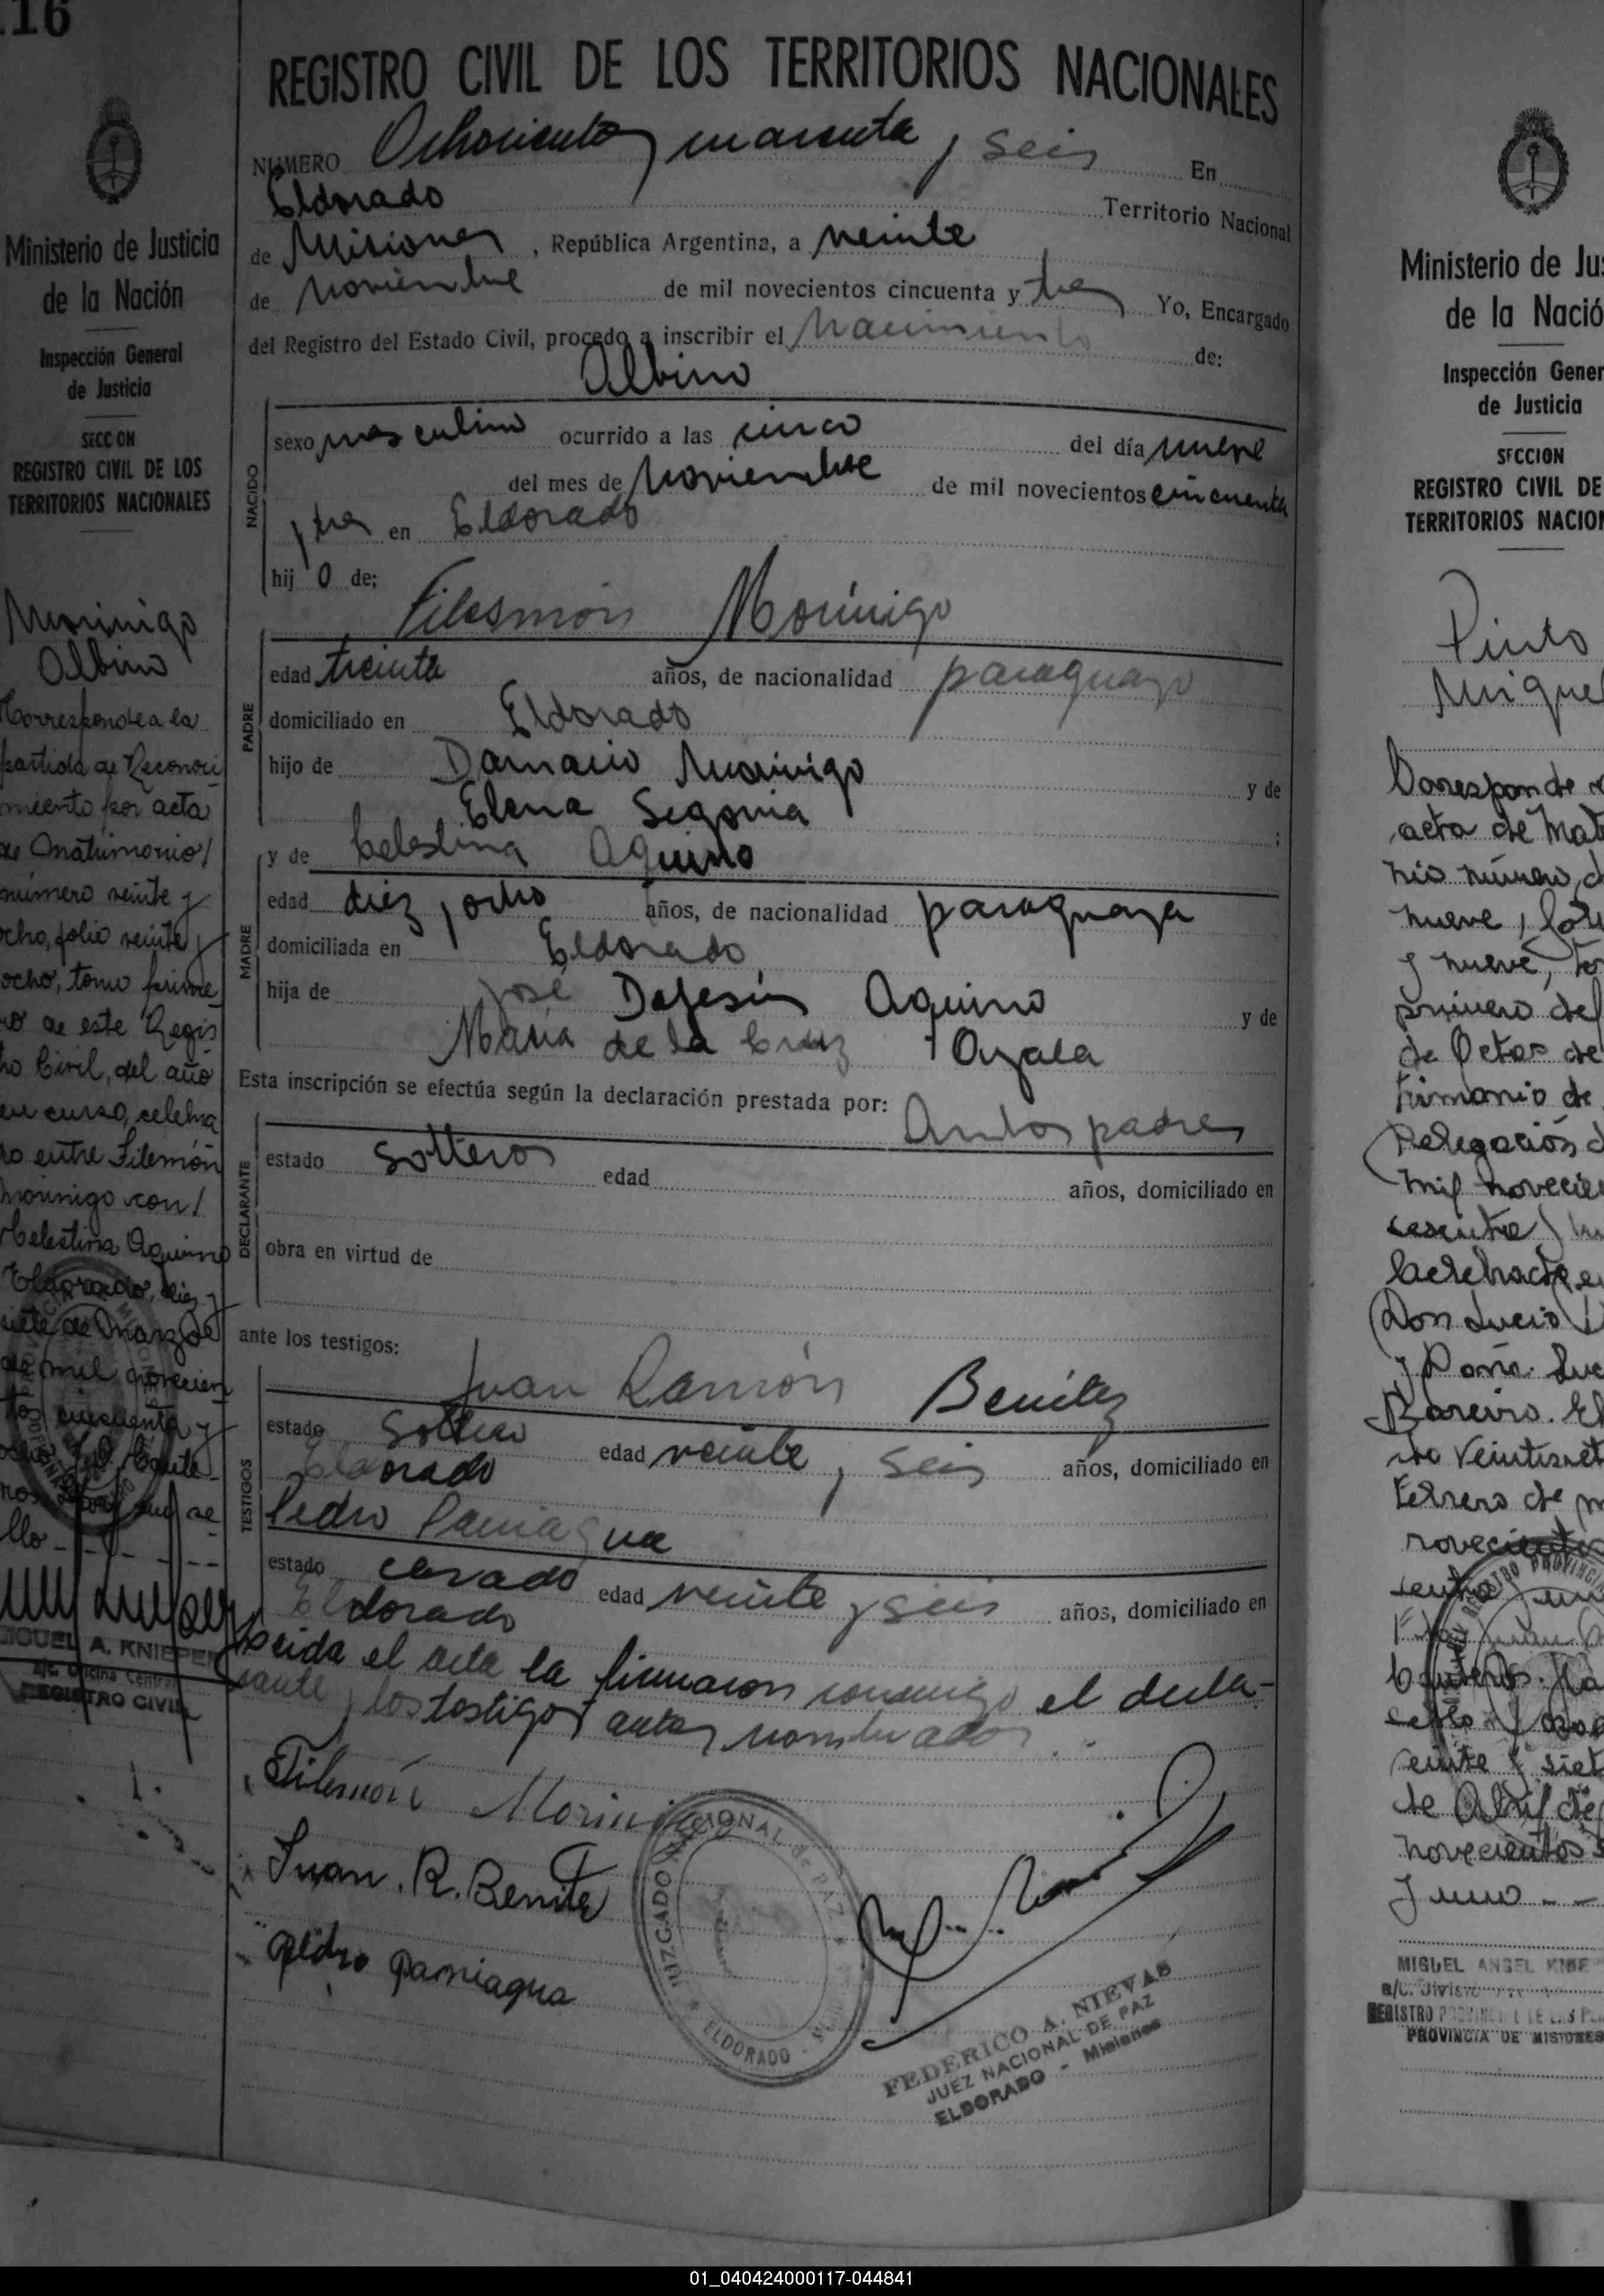 116
Ministerio de Justicia
de la Nación
Inspección General
de Justicia
SECCION
REGISTRO CIVIL DE LOS
TERRITORIOS NACIONALES
Morinigo
Albino
Corresponde a la
partida de Reconoci
miento por acta
de Matrimonio/
número veinte y
ocho, folio veinte y
ocho, tomo prime
ro de este Regis
tro Civil, del año
en curso, celebra
do entre Filemón
Morinigo con/
Celestina Aquino
Eldorado, diez y
siete de Marzo de
de mil novecien
tos cincuenta y
se
llo
MIGUEL A. KNIEPER
a/c. Oficina Central
REGISTRO CIVIL
REGISTRO CIVIL DE LOS TERRITORIOS NACIONALES
NUMERO Ochocientos cuarenta y seis En
Eldorado Territorio Nacional
de Misiones, República Argentina, a veinte
de Noviembre de mil novecientos cincuenta y tres Yo, Encargado
del Registro del Estado Civil, procedo a inscribir el Nacimiento de:
Albino
NACIDO
sexo masculino ocurrido a las cinco del día nueve
del mes de Noviembre de mil novecientos cincuenta
y tres en Eldorado
hij o de;
Filesmón Morínigo
PADRE
edad treinta años, de nacionalidad paraguayo
domiciliado en Eldorado
hijo de Damacio Morinigo y de
Elena Segovia ;
y de Celestina Aquino
MADRE
edad diez y ocho años, de nacionalidad paraguaya
domiciliada en Eldorado
hija de José Dejesús Aquino y de
María de la Cruz Ayala
Esta inscripción se efectúa según la declaración prestada por: Ambos padres
DECLARANTE
estado solteros edad años, domiciliado en
obra en virtud de
ante los testigos:
Juan Ramón Benítez
TESTIGOS
estado soltero edad veinte y seis años, domiciliado en
Eldorado
Pedro Paniagua
estado casado edad veinte y seis años, domiciliado en
Eldorado
Leida el acta la firmaron conmigo el decla-
rante y los testigos antes nombrados
Filemón Morinigo
Juan. R. Benitez
Pedro Paniagua
JUZGADO NACIONAL de PAZ
ELDORADO
FEDERICO A. NIEVAS
JUEZ NACIONAL DE PAZ
ELDORADO - Misiones
Ministerio de Jus
de la Nació
Inspección Gener
de Justicia
SECCION
REGISTRO CIVIL DE
TERRITORIOS NACION
Pinto
Miguel
Corresponde
acta de Mat
nio número, d
nueve, fol
y nueve, to
primero del
de Actas de
trimonio de
Delegación d
mil novecien
sesenta y
lacelebracion
Don Lucio
y Doña. Luc
Bareiro. El
do Veintisiet
Febrero de m
novecientos
einte y siet
de Abril de
novecientos s
y uno - -
MIGUEL ANGEL KNIE
a/c. Division
REGISTRO PROVINCIAL DE LAS PE
PROVINCIA DE MISIONES
01_040424000117-044841